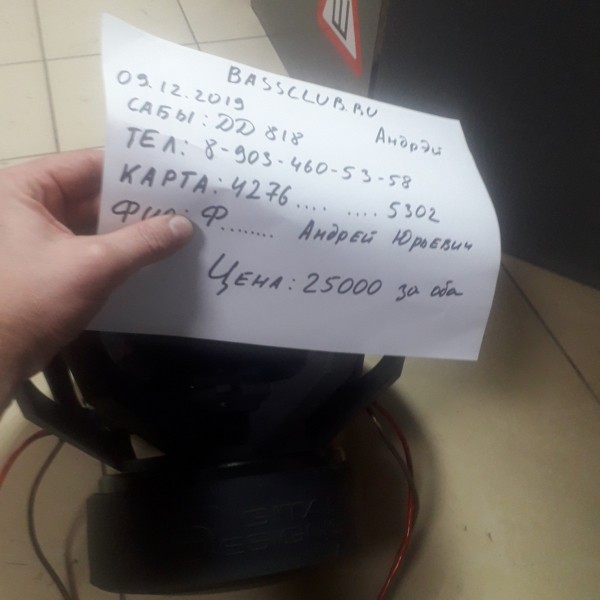 BASSCLUB.RU
09.12.2019 Андрэй
САБЫ: DD 818
ТЕЛ: 8-903-460-53-58
КАРТА: 4276.... .... 5302
ФИО: Ф........ Андрей Юрьевич
ЦЕНА: 25000 за оба